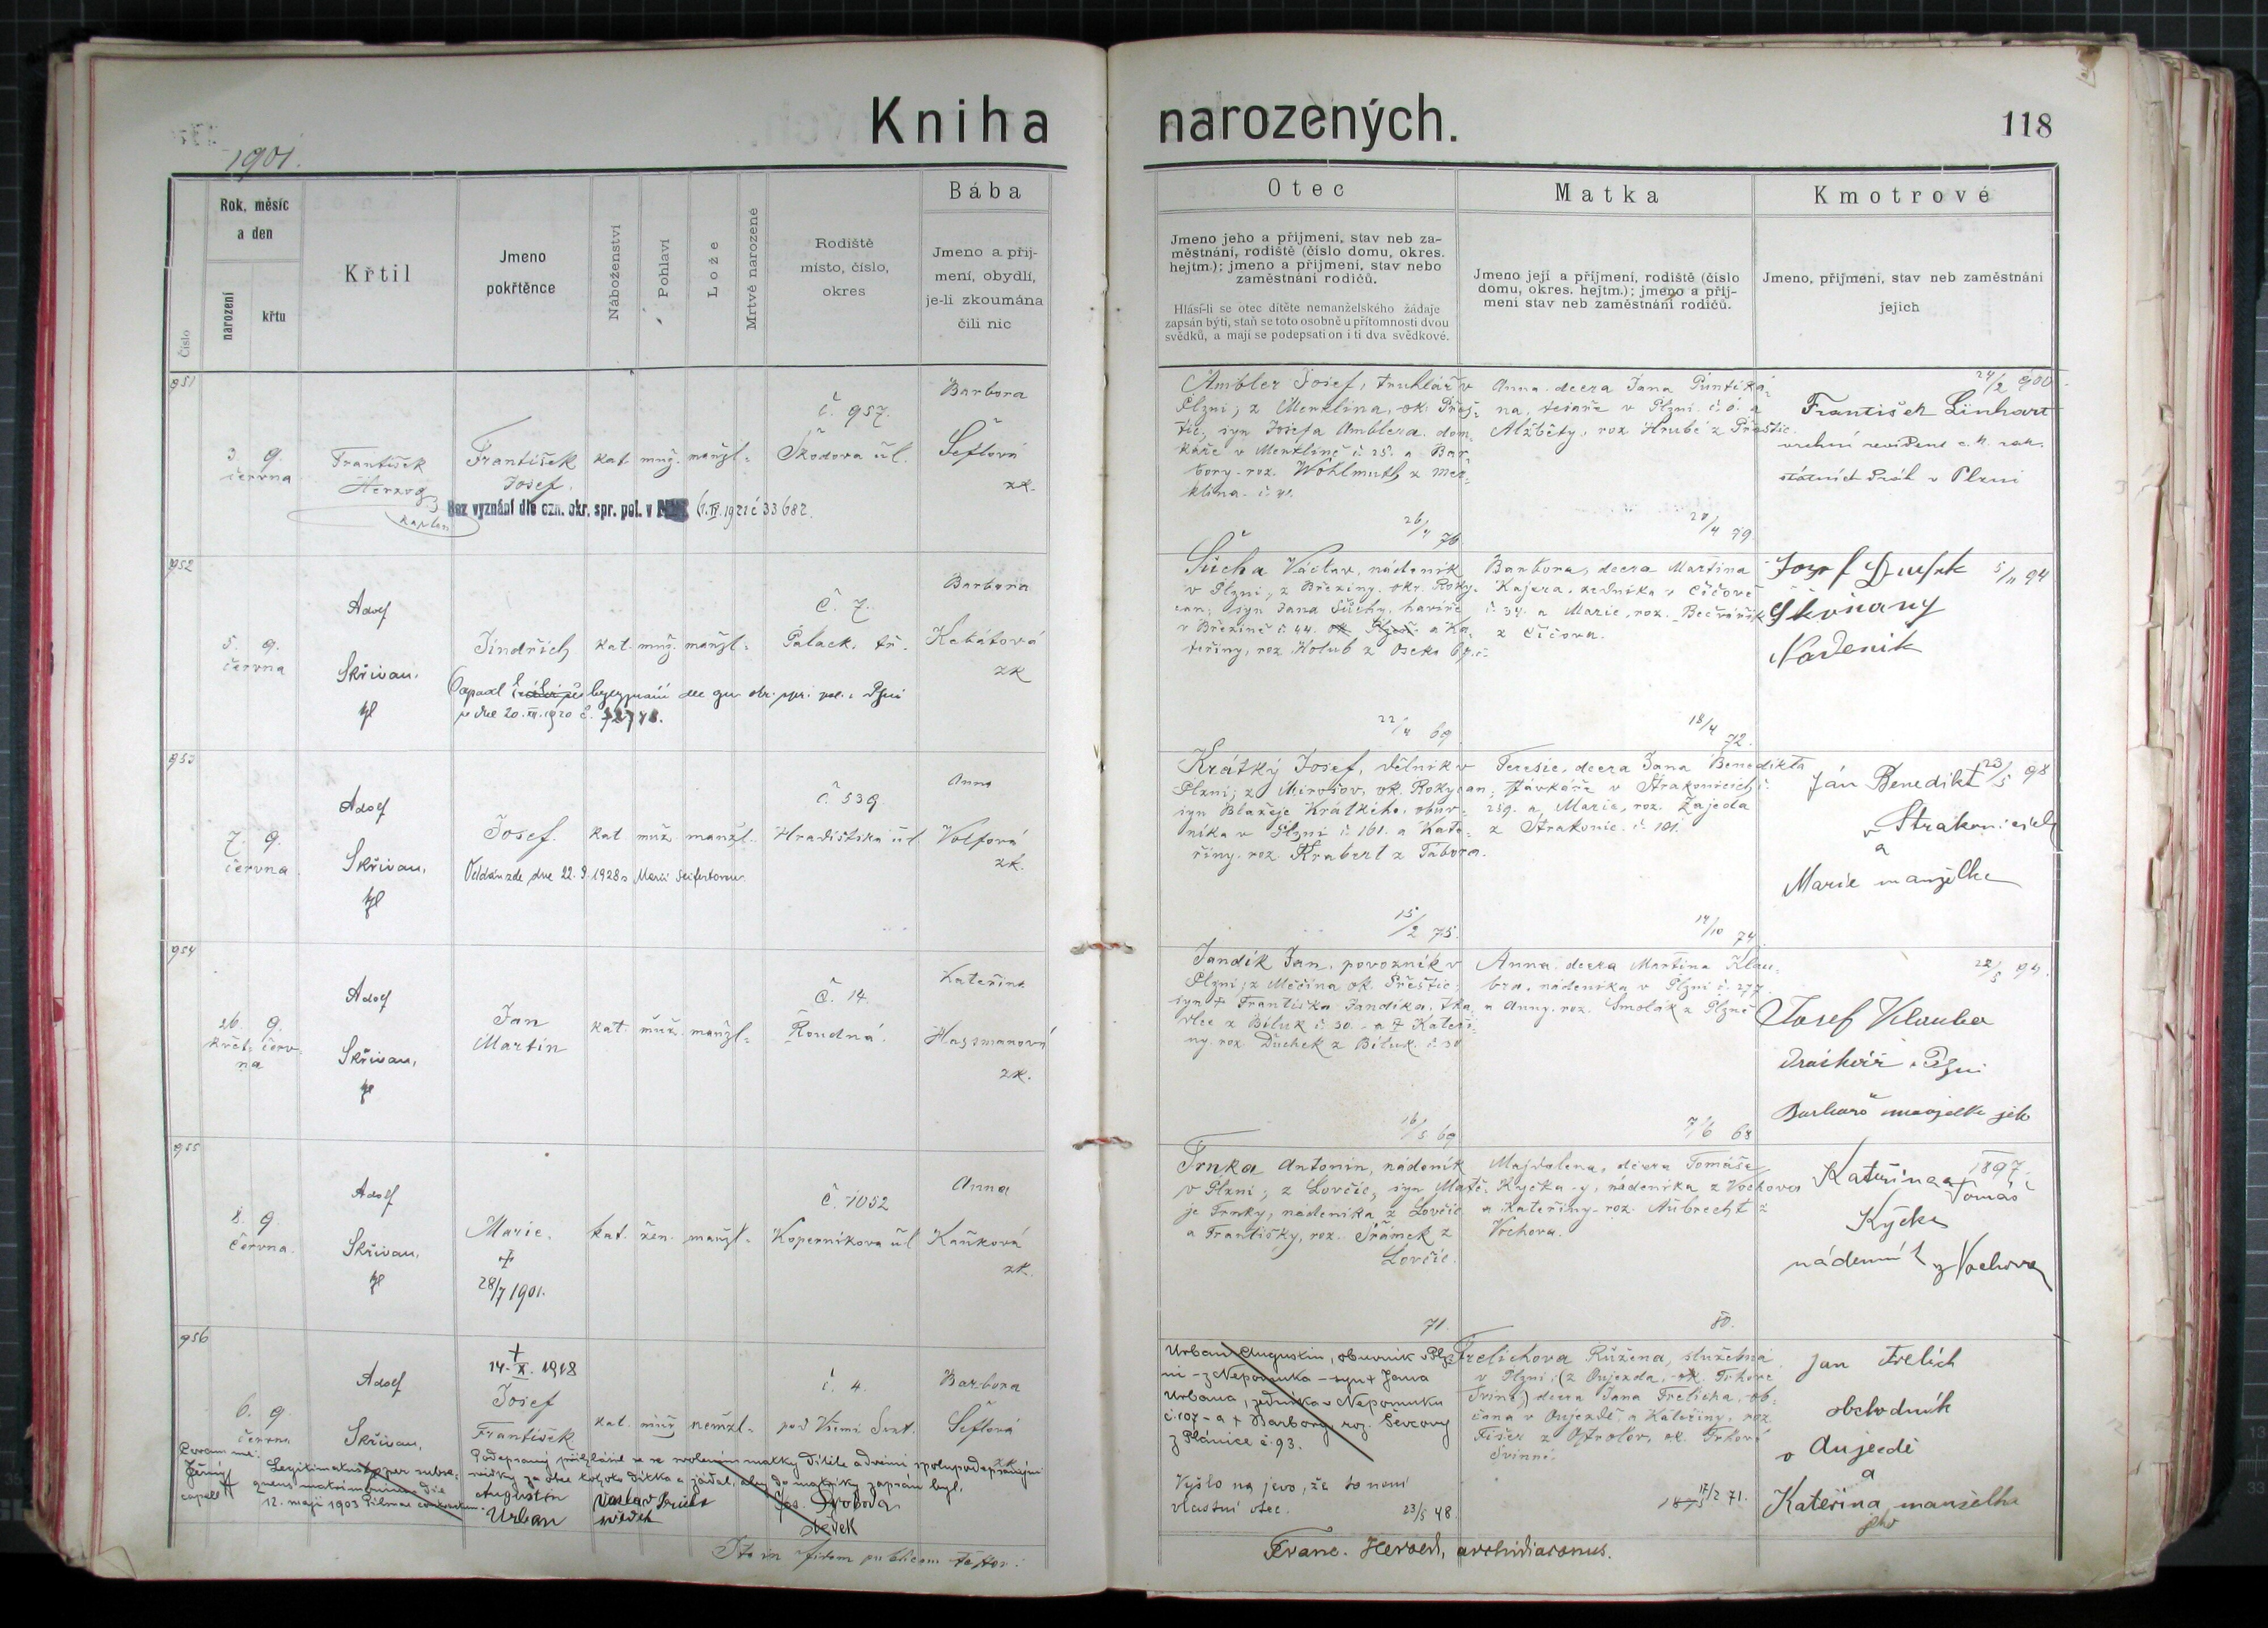 Kniha narozených.
118
1901.
Číslo
Rok, měsíc
a den
narození
křtu
Křtil
Jmeno
pokřtěnce
Náboženství
Pohlaví
Lože
Mrtvě narozené
Rodiště
místo, číslo,
okres
Bába
Jmeno a příj-
mení, obydlí,
je-li zkoumána
čili nic
Otec
Jmeno jeho a příjmení, stav neb za-
městnání, rodiště (číslo domu, okres.
hejtm.); jmeno a příjmení, stav nebo
zaměstnání rodičů.
Hlásí-li se otec dítěte nemanželského žádaje
zapsán býti, staň se toto osobně u přítomnosti dvou
svědků, a mají se podepsati on i ti dva svědkové.
Matka
Jmeno její a příjmení, rodiště (číslo
domu, okres. hejtm.); jmeno a příj-
mení stav neb zaměstnání rodičů.
Kmotrové
Jmeno, příjmení, stav neb zaměstnání
jejich
951
3. 9.
června
František
Herzog
kaplan
František
Josef.
kat. muž. manžl.
č. 957.
Škodova ul.
Barbora
Šeflová
zk.
Bez vyznání dle ozn. okr. spr. pol. v 6. IV. 1921 č 33682.
Ambler Josef, truhlář v
Plzni; z Merklína, ok. Přeš-
tic, syn Josefa Amblera, dom-
káře v Merklíně č. 25. a Bar-
bory, roz. Wohlmuth z Mer-
klína. č. 41.
26/4 76.
Anna, dcera Jana
na, tesaře v Plzni. č. 6. a
Alžběty, roz. Hrubé z Přeštic.
20/4 79.
24/2 900
František Linhart
vrchní revident c. k. rak.
státních drah v Plzni
952
5. 9.
června
Adolf
Skřivan,
kpl
Jindřich
kat. muž. manžl.
Č. 7.
Palack. tř.
Barbora
Kebátová
zk
Odpadl bezvyznání dle ozn. okr. spr. pol. v Plzni
ze dne 20. XII. 1920 č. 72778.
Šůcha Václav, nádeník
v Plzni, z Březiny, okr. Roky-
can; syn Jana Šůchy, havíře
v Březině č. 44. a Ka-
teřiny, roz. Holub z Oseka
22/4 69.
Barbora, dcera Martina
Kajera, zedníka v Čičově
č. 34. a Marie, roz. Bečvářík
z Čičova.
18/4 72.
5/11 94
Josef
Skvrňany
Nádenik
953
7. 9.
června
Adolf
Skřivan,
kpl
Josef.
kat. muž. manžl.
č. 539
Hradištská ul.
Anna
Volfová
zk.
Oddán zde dne 22. 9. 1928 s Marií Seifertovou.
Krátký Josef, dělník v
Plzni; z Mirošov, ok. Rokycan;
syn Blažeje Krátkého, obuv-
níka v Plzni č. 161. a Kate-
řiny, roz. Krabert z Tábora.
15/2 75.
Teresie, dcera Jana Benedikta
stávkáře v Strakonicích č.
259. a Marie, roz. Zajeda
z Strakonic. č. 101.
14/10 74.
23/5 98
Ján Benedikt
v Strakonicích
a
Marie manželka
954
26. 9.
květ. červ-
na
Adolf
Skřivan,
kpl
Jan
Martin
kat. muž. manžl.
Č. 14.
Roudná.
Kateřina
Hassmanová
zk.
Jandík Jan, povozník v
Plzni; z Měčína ok. Přeštic;
syn † Františka Jandíka, tka-
dlce z Bíluk č. 30. a † Kateři-
ny, roz. Duchek z Bíluk. č. 30
16/5 69
Anna, dcera Martina Klau-
bra, nádeníka v Plzni č. 277.
a Anny, roz. Smolák z Plzně
7/6 68
22/5 94.
Josef Klauba
v Plzni
Barbora manželka jeh
955
8. 9.
června.
Adolf
Skřivan,
kpl
Marie.
†
28/7 1901.
kat. žen. manžl.
Č. 1052
Koperníkova ul.
Anna
Kaňková
zk.
Trnka Antonín, nádeník
v Plzni; z Lovčic, syn Matě-
je Trnky, nádeníka z Lovčic
a Františky, roz. Šrámek z
Lovčic.
71.
Majdalena, dcera Tomáše
Kyčka-y, nádeníka z Vochova
a Kateřiny, roz. Aubrecht z
Vochova.
80.
1897
Kateřina a Tomáš
Kyčka
nádenník z Vochova
956
6. 9.
června
Adolf
Skřivan,
†
14. X. 1918
Josef
František
kat. muž nemžl.
č. 4.
pod Všemi Svat.
Barbora
Šeflová
zk.
Coram me:
Černý
capell
Legitimatus per subse-
quens matrimonium die
12. maji 1903 Pilnae contractum.
Podepsaný přihlásil se se svolením matky dítěte a dvěma spolupodepsanými
svědky za otce tohoto dítka a žádal, aby do matriky zapsán byl.
Augustin
Urban
Václav
svědek
Jos. Svoboda
svědek
Urban Augustin, obuvník v Plz-
ni - z Nepomuka - syn † Jana
Urbana, zedníka v Nepomuku
č. 107 - a † Barbory roz. Ševcovy
z Plánice č. 93.
Vyšlo na jevo, že to není
vlastní otec.
23/5 48.
Frelichova Růžena, služebná
v Plzni; (z Oujezda, ok. Trhové
Sviny) dcera Jana Frelicha, ob-
čana v Oujezdě a Kateřiny, roz.
Fišer z Ostrolov, ok. Trhové
Svinné.
17/2 71.
Jan Frelich
obchodník
v Aujezdě
a
Kateřina, manželka
jeho
Ita in fidem publicam testor:
Franc. Herold, archidiaconus.